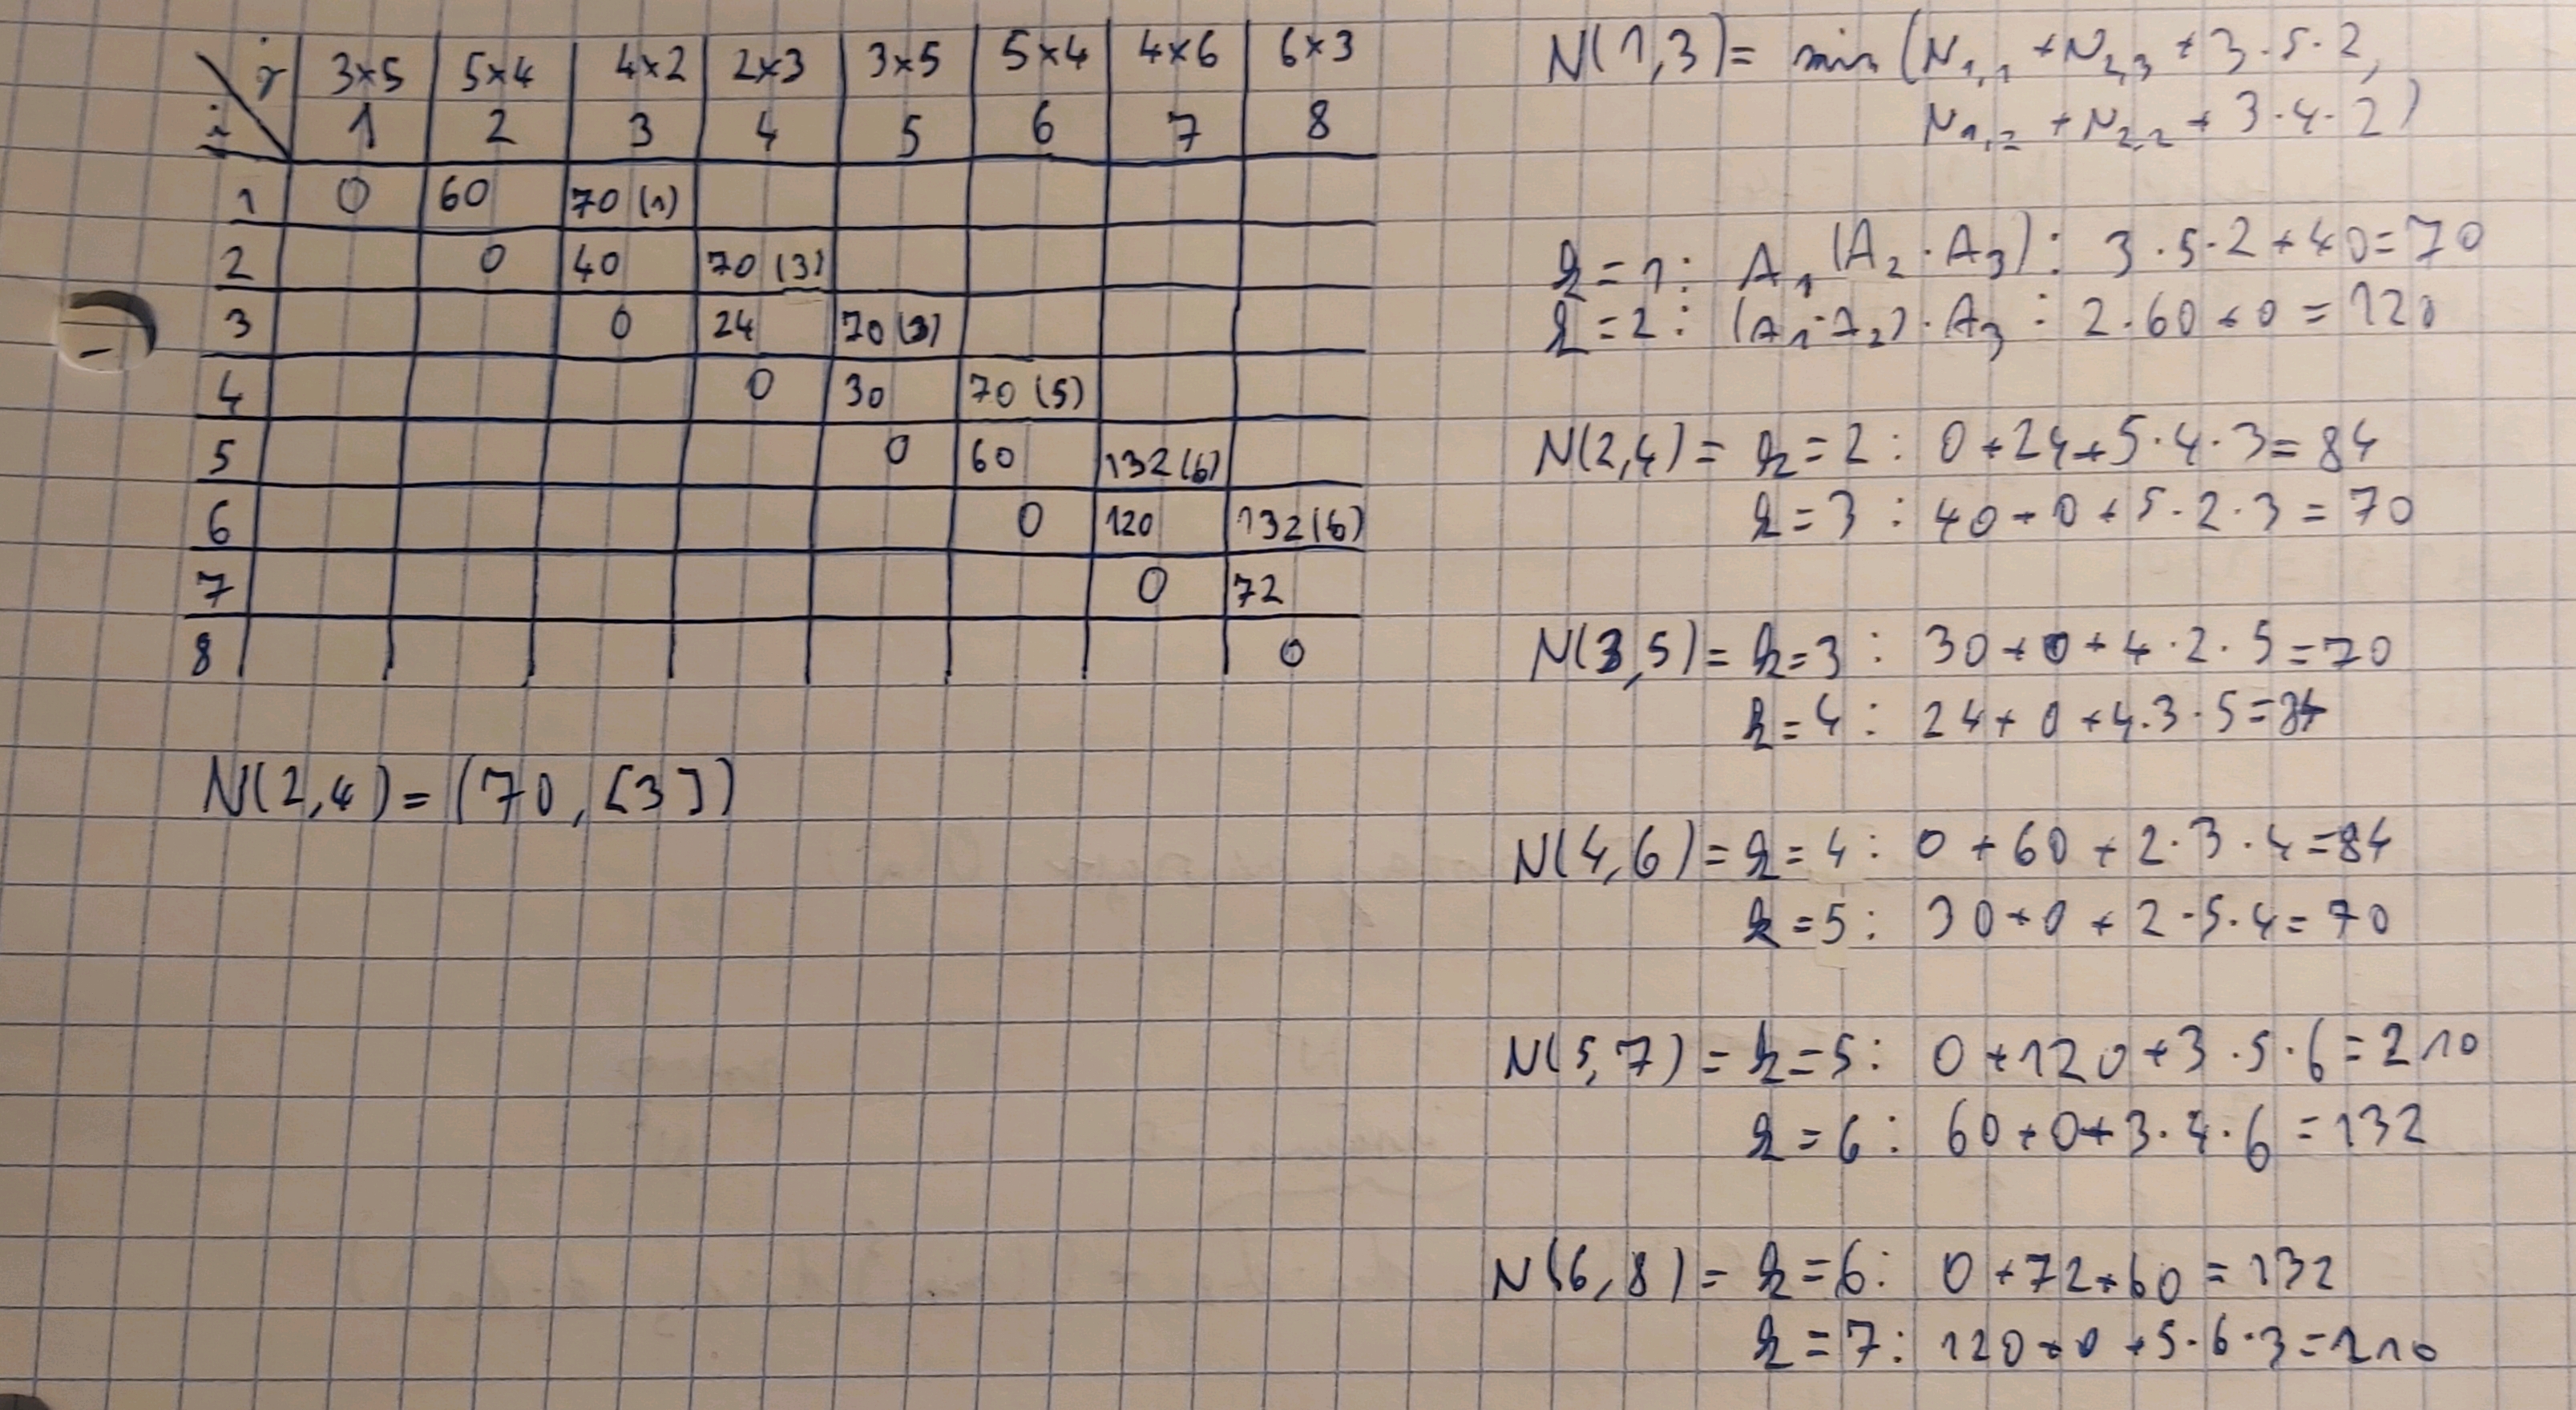 j 3×5 5×4 4×2 2×3 3×5 5×4 4×6 6×3
i 1 2 3 4 5 6 7 8
1 0 60 70 (1)
2 0 40 70 (3)
3 0 24 70 (3)
4 0 30 70 (5)
5 0 60 132 (6)
6 0 120 132 (6)
7 0 72
8 0
N(2,4) = (70, [3])
N(1,3) = min (N₁,₁ + N₂,₃ + 3·5·2,
N₁,₂ + N₂,₂ + 3·4·2)
k=1: A₁ (A₂·A₃): 3·5·2+40=70
k=2: (A₁·A₂)·A₃: 2·60+0=120
N(2,4) = k=2: 0+24+5·4·3=84
k=3: 40+0+5·2·3=70
N(3,5) = k=3: 30+0+4·2·5=70
k=4: 24+0+4·3·5=84
N(4,6) = k=4: 0+60+2·3·4=84
k=5: 30+0+2·5·4=70
N(5,7) = k=5: 0+120+3·5·6=210
k=6: 60+0+3·4·6=132
N(6,8) = k=6: 0+72+60=132
k=7: 120+0+5·6·3=210